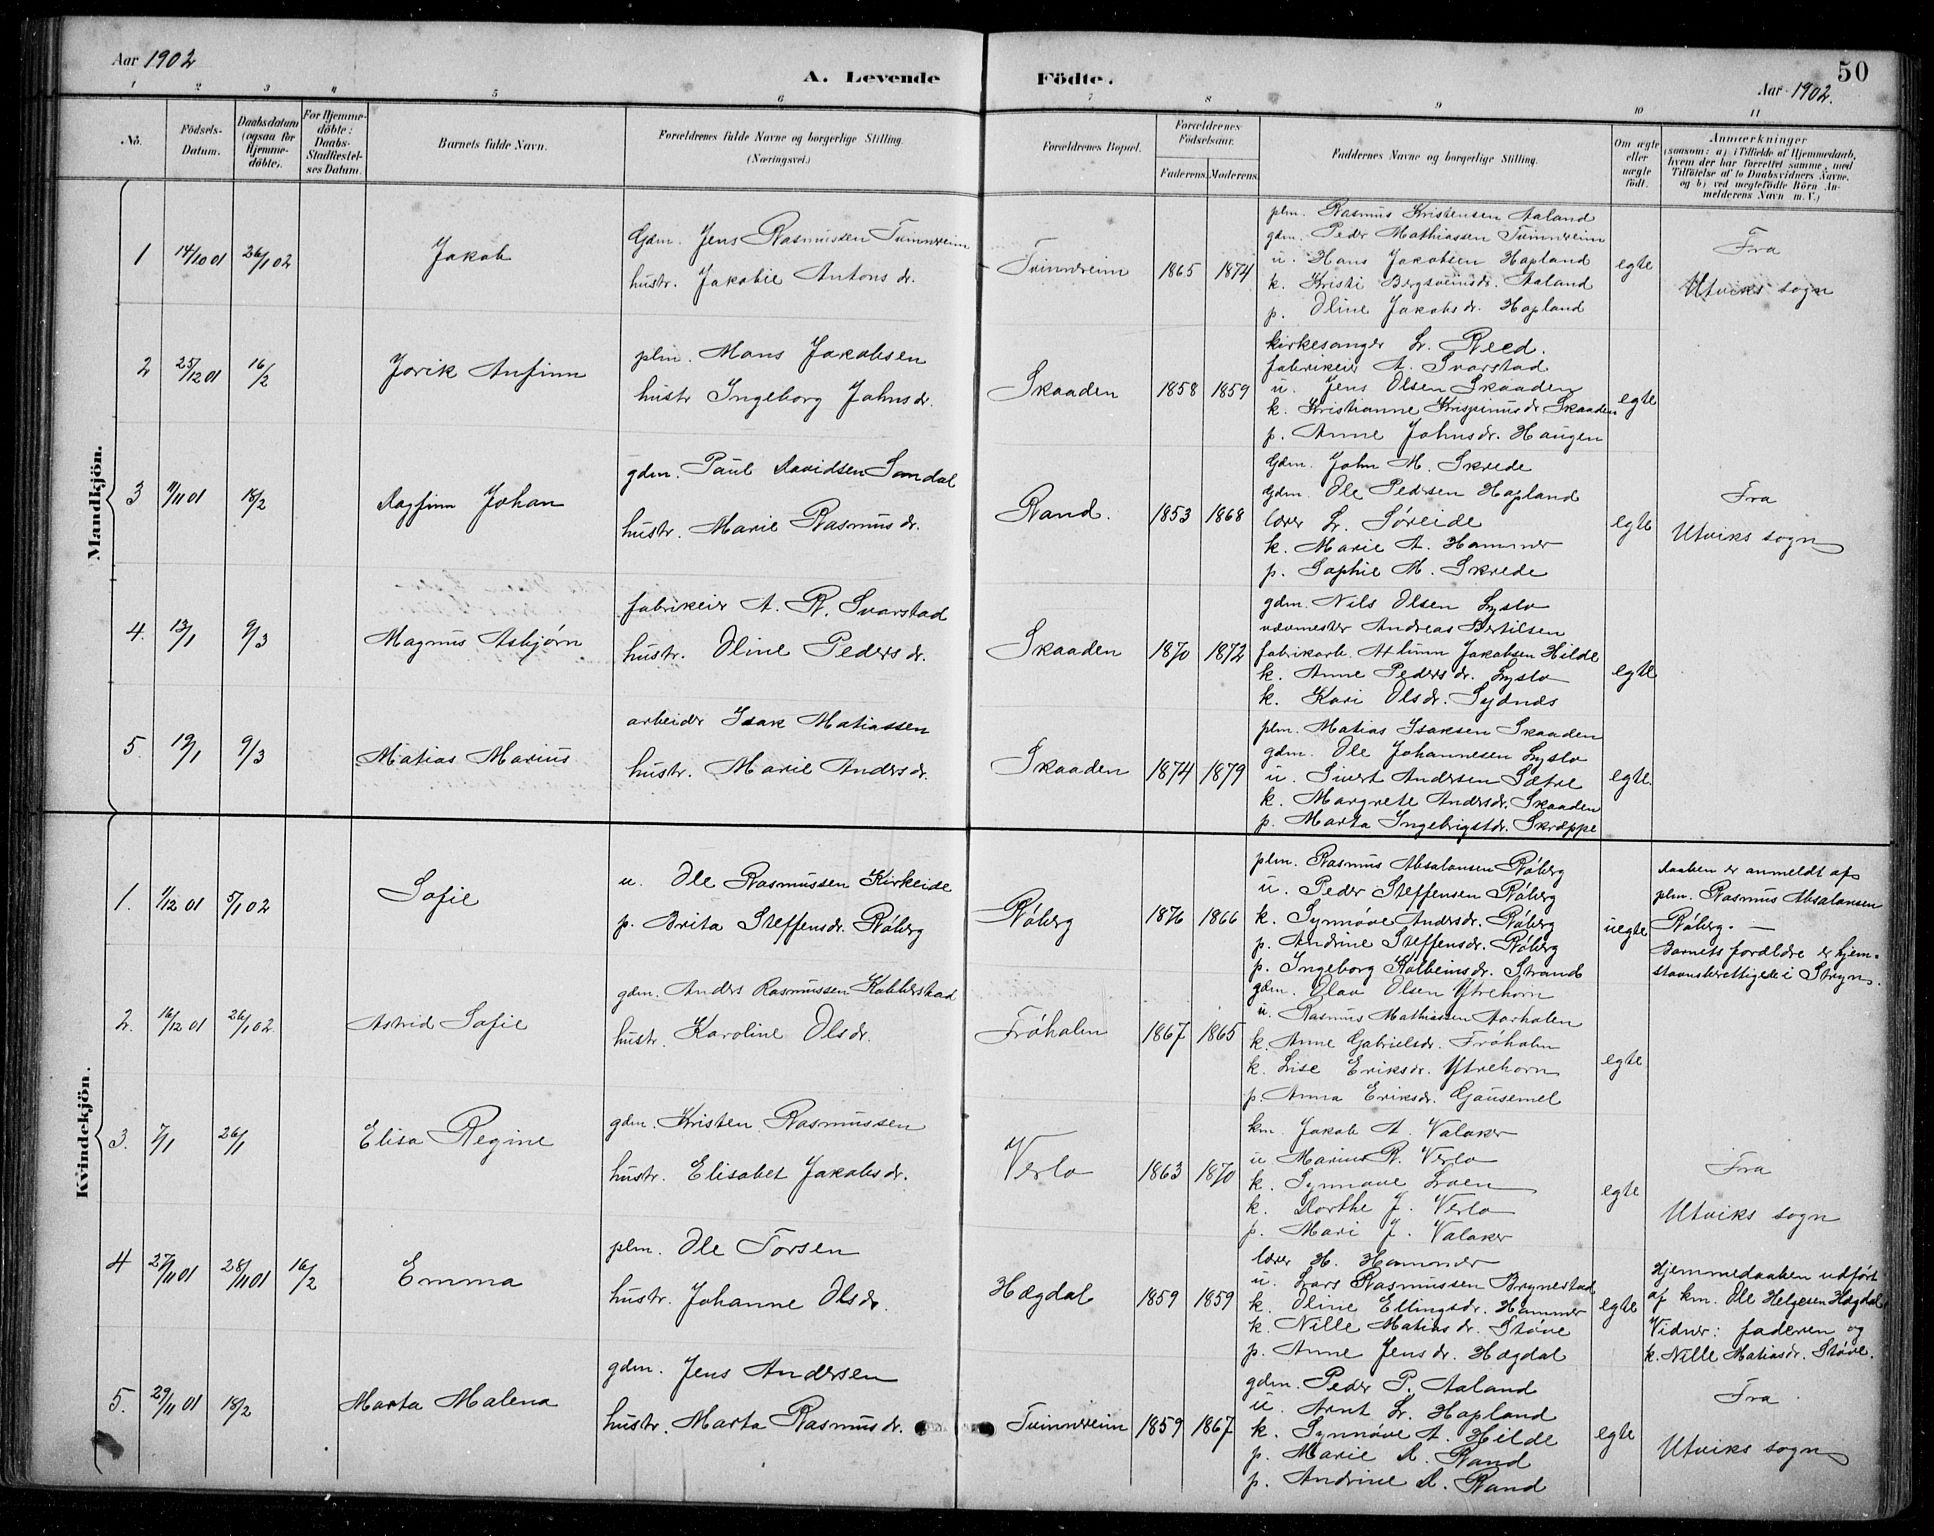 Aar 1902
A. Levende Fødte.
50
Aar 1902.
1 2 3 4 5 6 7 8 9 10 11
No.
Fødsels-Datum.
Daabsdatum (ogsaa for Hjemmedøbte).
For Hjemmedøbte: Daabs-Stadfæstelses Datum.
Barnets fulde Navn.
Forældrenes fulde Navne og borgerlige Stilling. (Næringsvei.)
Forældrenes Bopæl.
Forældrenes Fødselsaar.
Faderens. Moderens.
Faddernes Navne og borgerlige Stilling.
Om ægte eller uægte født.
Anmærkninger
(saasom: a) i Tilfælde af Hjemmedaab, hvem der har forrettet samme, med Tilføielse af to Daabsvidners Navne, og b) ved uægtefødte Børn Anmelderens Navn m. V.)
Mandkjøn.
1 14/10 01 26/1 02 Jakob
Gdm. Jens Rasmussen Tvinnereim
hustr. Jakobie Antonsdr.
Tvinnereim 1865 1874
plm. Rasmus Kristensen Aaland
gdm. Peder Mathiassen Tvinnereim
u. Hans Jakobsen Hopland
k. Kristi Bergsveinsdr. Aaland
p. Oline Jakobsdr. Hopland
egte
Fra
Utviks sogn
2 25/12 01 16/2 Jorik Anfinn
plm. Mons Jakobsen
hustr Ingeborg Johnsdr.
Skaaden 1858 1859
kirkesanger L. Reed.
fabrikeier A. Svarstad
u. Jens Olsen Skaaden
k. Kristianne Krispinusdr. Skaaden
p. Anne Johnsdr. Haugen
egte
3 11/11 01 18/2 Dagfinn Johan
gdm. Paul Davidsen Sandal
hustr. Marie Rasmusdr.
Rand. 1853 1868
Gdm. John M. Skrede
Gdm. Ole Pedersen Hopland
lærer L. Søreide
k. Marie A. Hammer
p. Sophie M. Skrede
egte
Fra
Utviks sogn
4. 13/1 9/3 Magnus Asbjørn
fabrikeier A. R. Svarstad
hustr. Oline Pedersdr.
Skaaden 1870 1872
gdm. Nils Olsen Lyslo
vævmester Andreas Bertilsen
fabrikarb. Jakobsen Hilde
k. Anne Pedersdr. Lyslo
k. Kari Olsdr. Sydnes
egte
5 19/1 9/3 Matias Marius
arbeider Isak Matiassen
hustr. Marie Andersdr.
Skaaden 1874 1879
plm. Matias Isaksen Skaaden
gdm. Ole Johannesen Lyslo
u. Sivert Andersen Sætre
k. Margrete Andersdr. Skaaden
p. Marta Ingebrigtdr. Skreppe
egte.
Kvindekjøn.
1. 1/12 01 5/1 02 Sofie
u. Ole Rasmussen Kirkeide
p. Brita Steffensdr. Røberg
Røberg 1876 1866
plm. Rasmus Absalonsen Røberg
u. Peder Steffensen Røberg
k. Synnøve Andersdr. Røberg
p. Andrine Steffensdr. Røberg
p. Ingeborg Kolbeinsdr. Strand
uegte
daaben er anmeldt af
plm. Rasmus Absalonsen
Røberg. —
Barnets forældre er hjem-
stavnsberettigede i Stryn.
2. 16/12 01 26/1 02 Astrid Sofie
gdm. Anders Rasmussen Kobberstad
hustr. Karoline Olsdr.
Frøholm 1867 1865
gdm. Olav Olsen Ytrehorn
u. Rasmus Mathiassen Aarholen
k. Anne Gabrielsdr. Frøholm
k. Lise Eriksdr. Ytrehorn
p. Anna Eriksdr. Gausemel
egte
3. 7/1 26/1 Elisa Regine
gdm. Kristen Rasmussen
hustr. Elisabet Jakobsdr.
Verlo 1863 1870
km. Jakob A. Valaker
u Marius R. Verlo
k. Synnøve Loen
k. Dorthe J. Verlo
p. Mari J. Valaker
egte
Fra
Utviks sogn
4 27/11 01 28/11 01 16/2 Emma
plm. Ole Torsen
hustr. Johanne Olsdr.
Hægdal 1859 1859
lærer H. Hammer
u. Lars Rasmussen Brynestad
k. Oline Ellingsdr. Hammer
k. Nille Matiasdr. Støve
p. Anne Jensdr. Hægdal
egte
Hjemmedaaben udført
af km. Ole Helgesen Hægdal
Vidner: faderen og
k. Nille Matiasdr. Støve.
5. 29/11 01 18/2 Marta Malena
gdm. Jens Andersen
hustr. Marta Rasmusdr.
Tvinnereim 1859 1867
gdm. Peder P. Aaland
u. Arnt L. Hopland
k. Synnøve A. Hilde
p. Marie D. Rand
p. Andrine D. Rand
egte
Fra
Utviks sogn